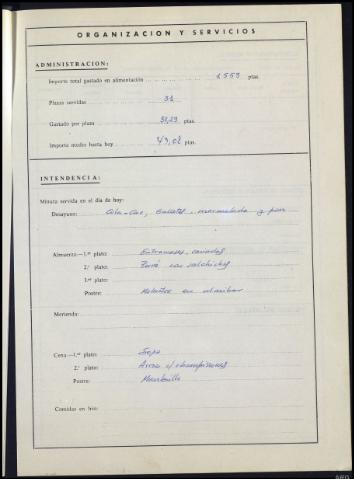 ORGANIZACION Y SERVICIOS
ADMINISTRACION:
Importe total gastado en alimentación 1.553 ptas.
Plazas servidas 31
Gastado por plaza ptas.
Importe medio hasta hoy 43,02 ptas.
INTENDENCIA:
Minuta servida en el día de hoy:
Desayuno: Cola-Cao, galletas, mermelada y pan
Almuerzo.—1.er plato: Entremeses variados
2.º plato: Puré con salchichas
3.er plato:
Postre: Melocotón en almíbar
Merienda:
Cena.—1.er plato: Sopa
2.º plato: Arroz c/ champiñones
Postre: Membrillo
Comidas en frío: